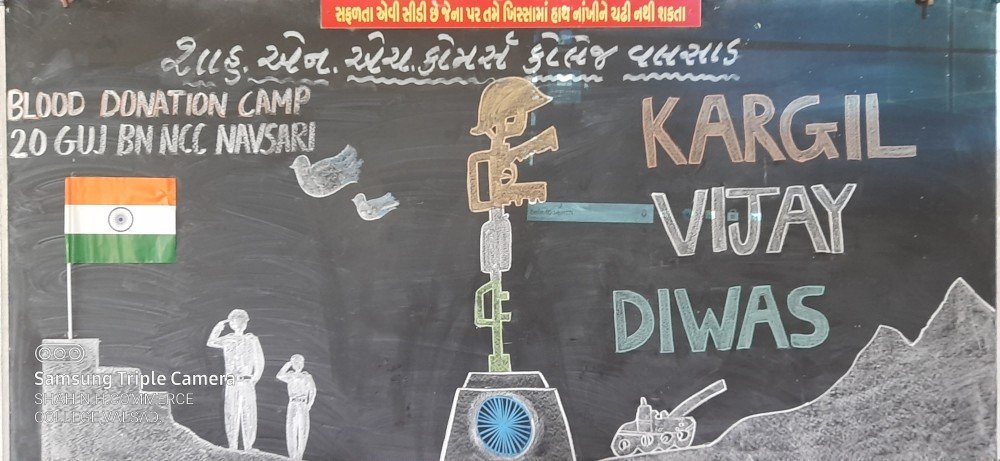 સફળતા એવી સીડી છે જેના પર તમે ખિસ્સામાં હાથ નાંખીને ચઢી નથી શકતા
શાહ. એન. એચ. કોમર્સ કોલેજ વલસાડ
BLOOD DONATION CAMP
20 GUJ BN NCC NAVSARI
KARGIL
VIJAY
DIWAS
Samsung Triple Camera
SHAH N H COMMERCE
COLLEGE VALSAD